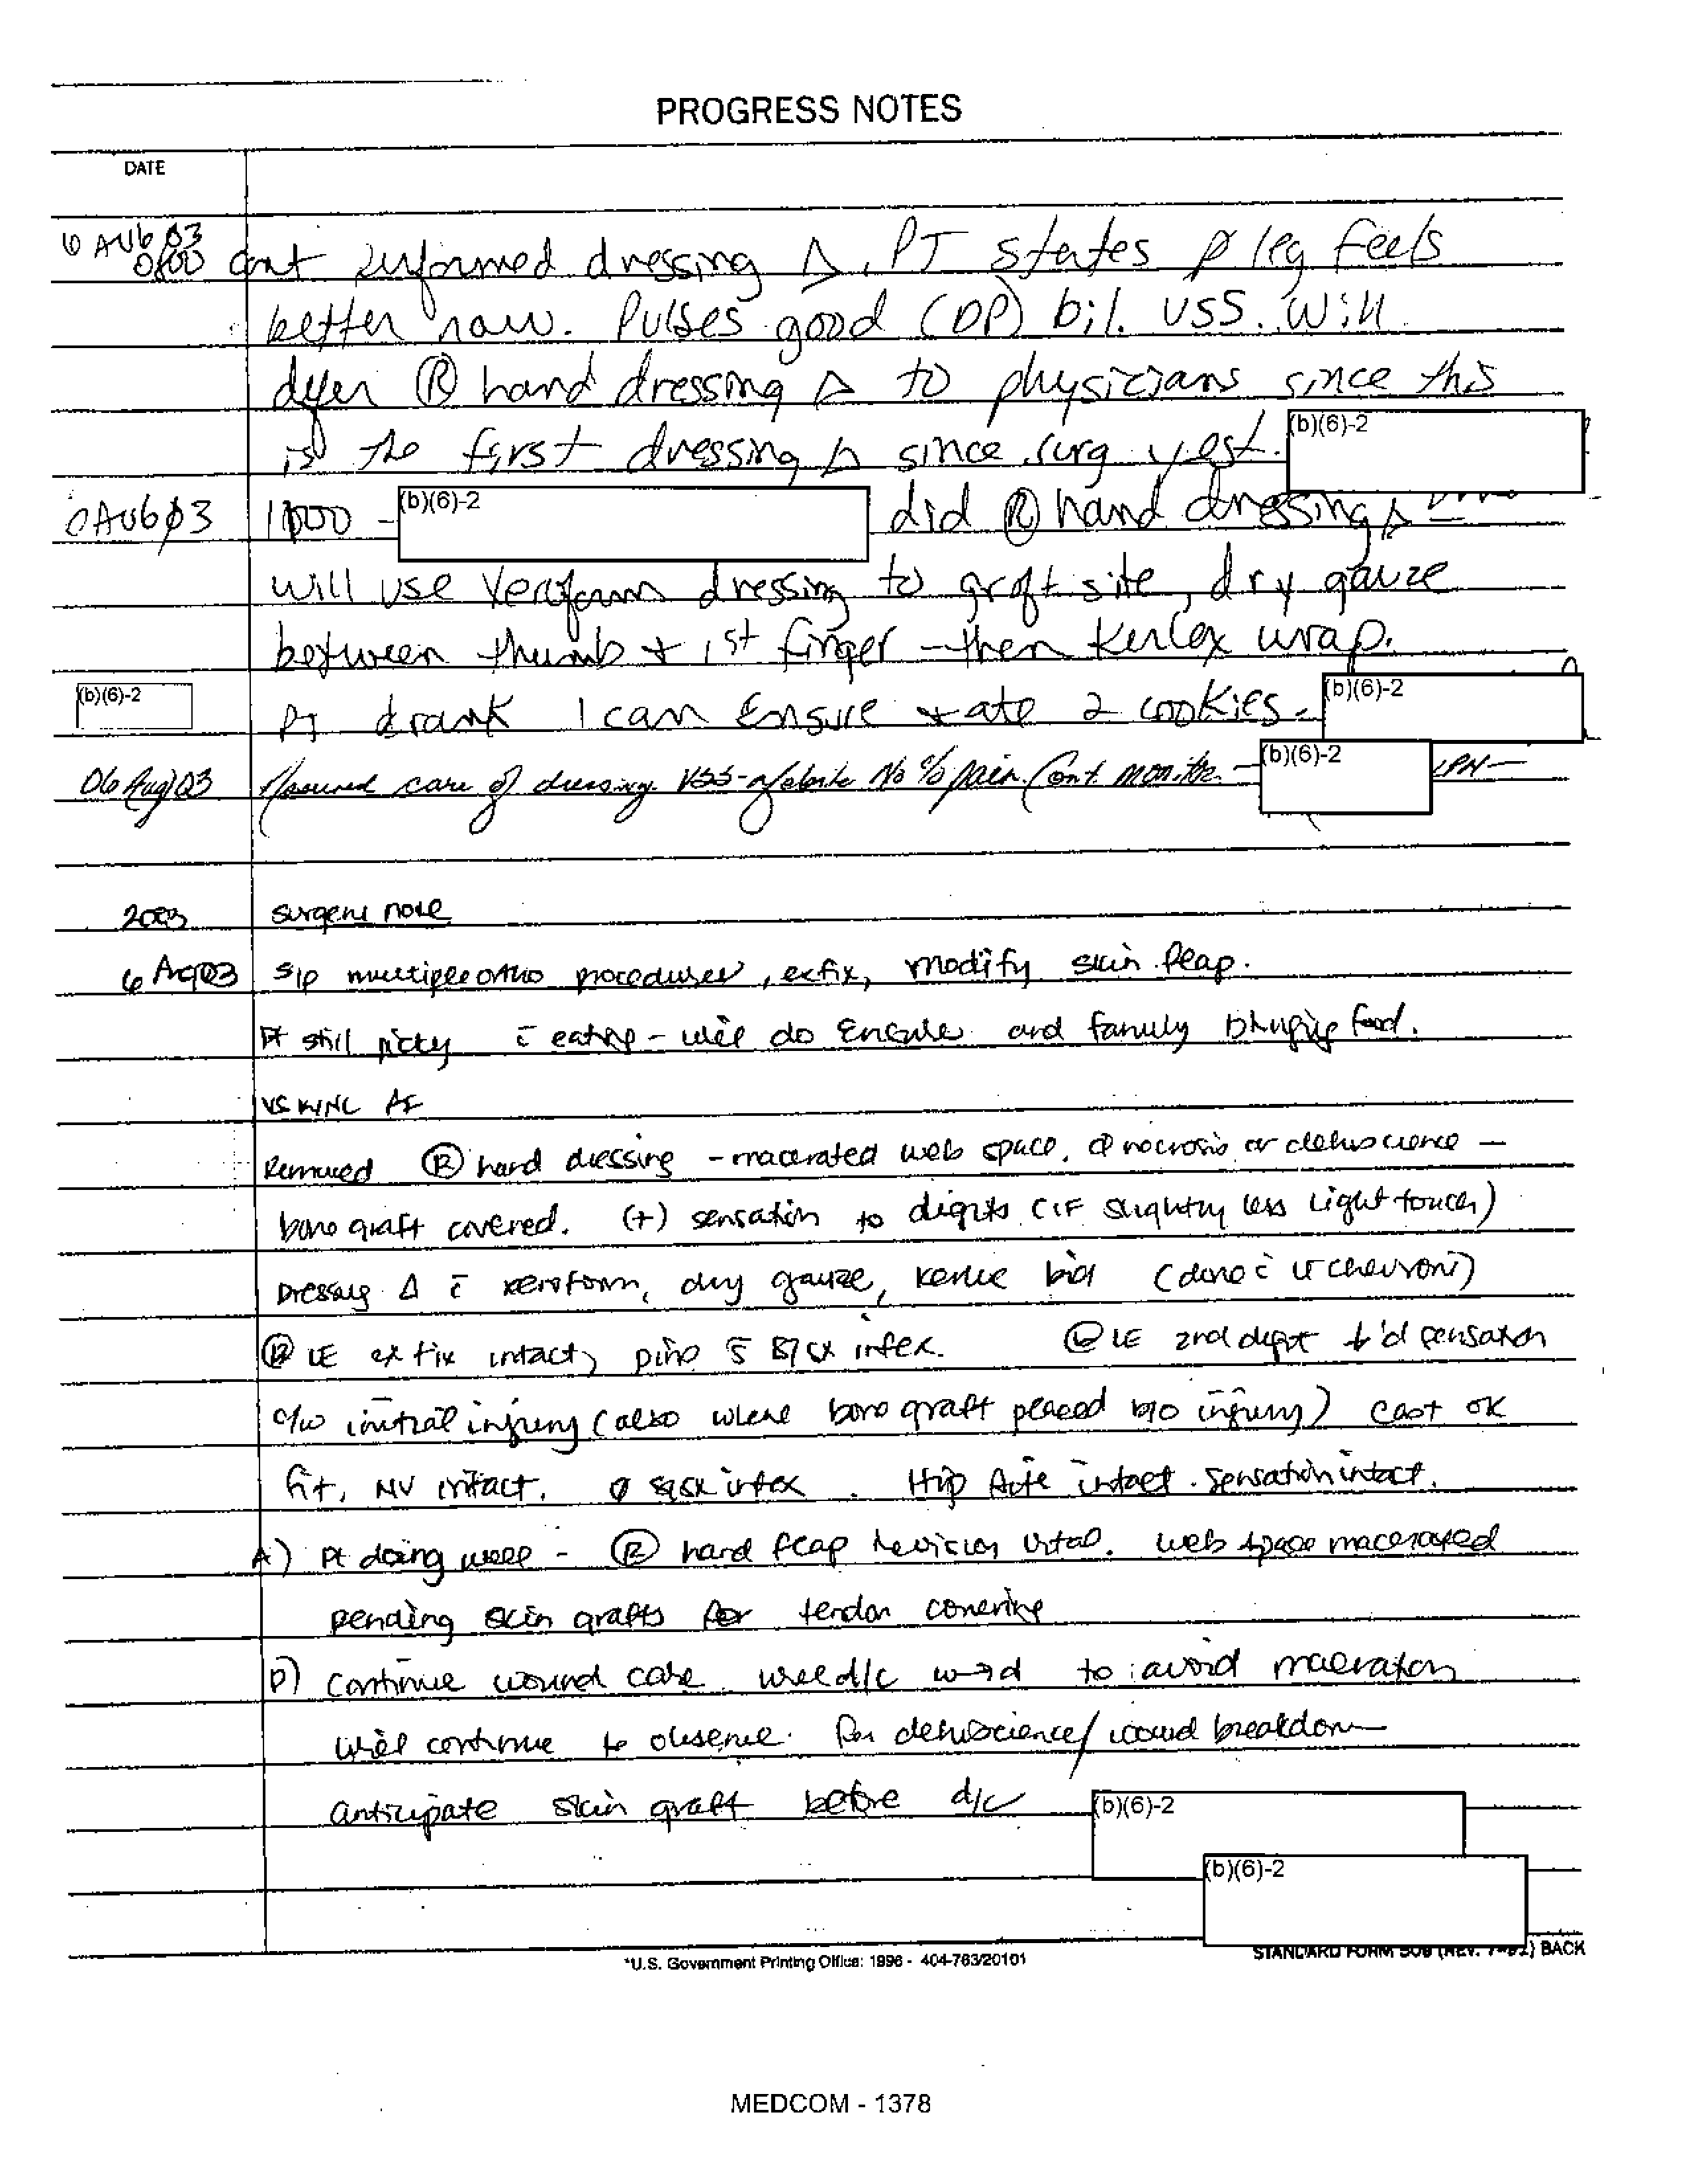 PROGRESS NOTES
DATE
6 AUG 03
0800 cont dressing Δ. PT states leg feels
better now. Pulses good (DP) bil. VSS. Will
defer Ⓡ hand dressing Δ to physicians since this
is the first dressing Δ since surg yest. (b)(6)-2
AUG 03 1000 - (b)(6)-2 did Ⓡ hand dressing Δ
will use Xeroform dressing to graft site, dry gauze
between thumb + 1st finger - then Kerlex wrap.
(b)(6)-2 PT drank 1 can Ensure + ate 2 cookies. (b)(6)-2
06 Aug 03 Assumed care of dressing. VSS - afebrile No c/o pain. Cont. monitor. - (b)(6)-2 LPN
2003 surgery note
6 Aug 03 s/p multiple ortho procedures, exfix, modify skin flap.
Pt still picky c̄ eating - will do Ensure and family bringing food.
VS WNL AF
Removed Ⓡ hand dressing - macerated web space, ∅ necrosis or dehiscience -
bone graft covered. (+) sensation to digits (IF slightly less light touch)
Dressing Δ c̄ xeroform, dry gauze, kerlix bid (done c̄
Ⓡ LE ex fix intact, pins s̄ infex. Ⓛ LE 2nd digit ↓'d sensation
c/w initial injury (also where bone graft placed injury) cast ok
fit, NV intact. ∅ infex. Hip intact. Sensation intact.
A) Pt doing well - Ⓡ hand flap revision vital. web space macerated
pending skin grafts for tendon covering
P) Continue wound care will d/c w→d to avoid maceration
will continue to observe. for dehiscience/wound breakdown
anticipate skin graft before d/c (b)(6)-2
(b)(6)-2
*U.S. Government Printing Office: 1996 - 404-763/20101
STANDARD FORM BACK
MEDCOM - 1378